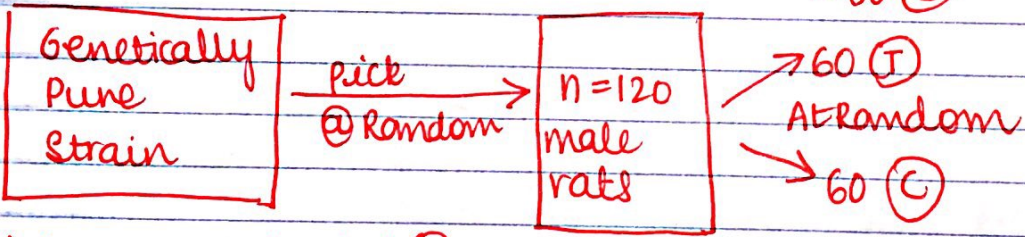 Genetically
Pure
Strain
Pick
@ Random
n = 120
male
rats
60 I
At Random
60 C